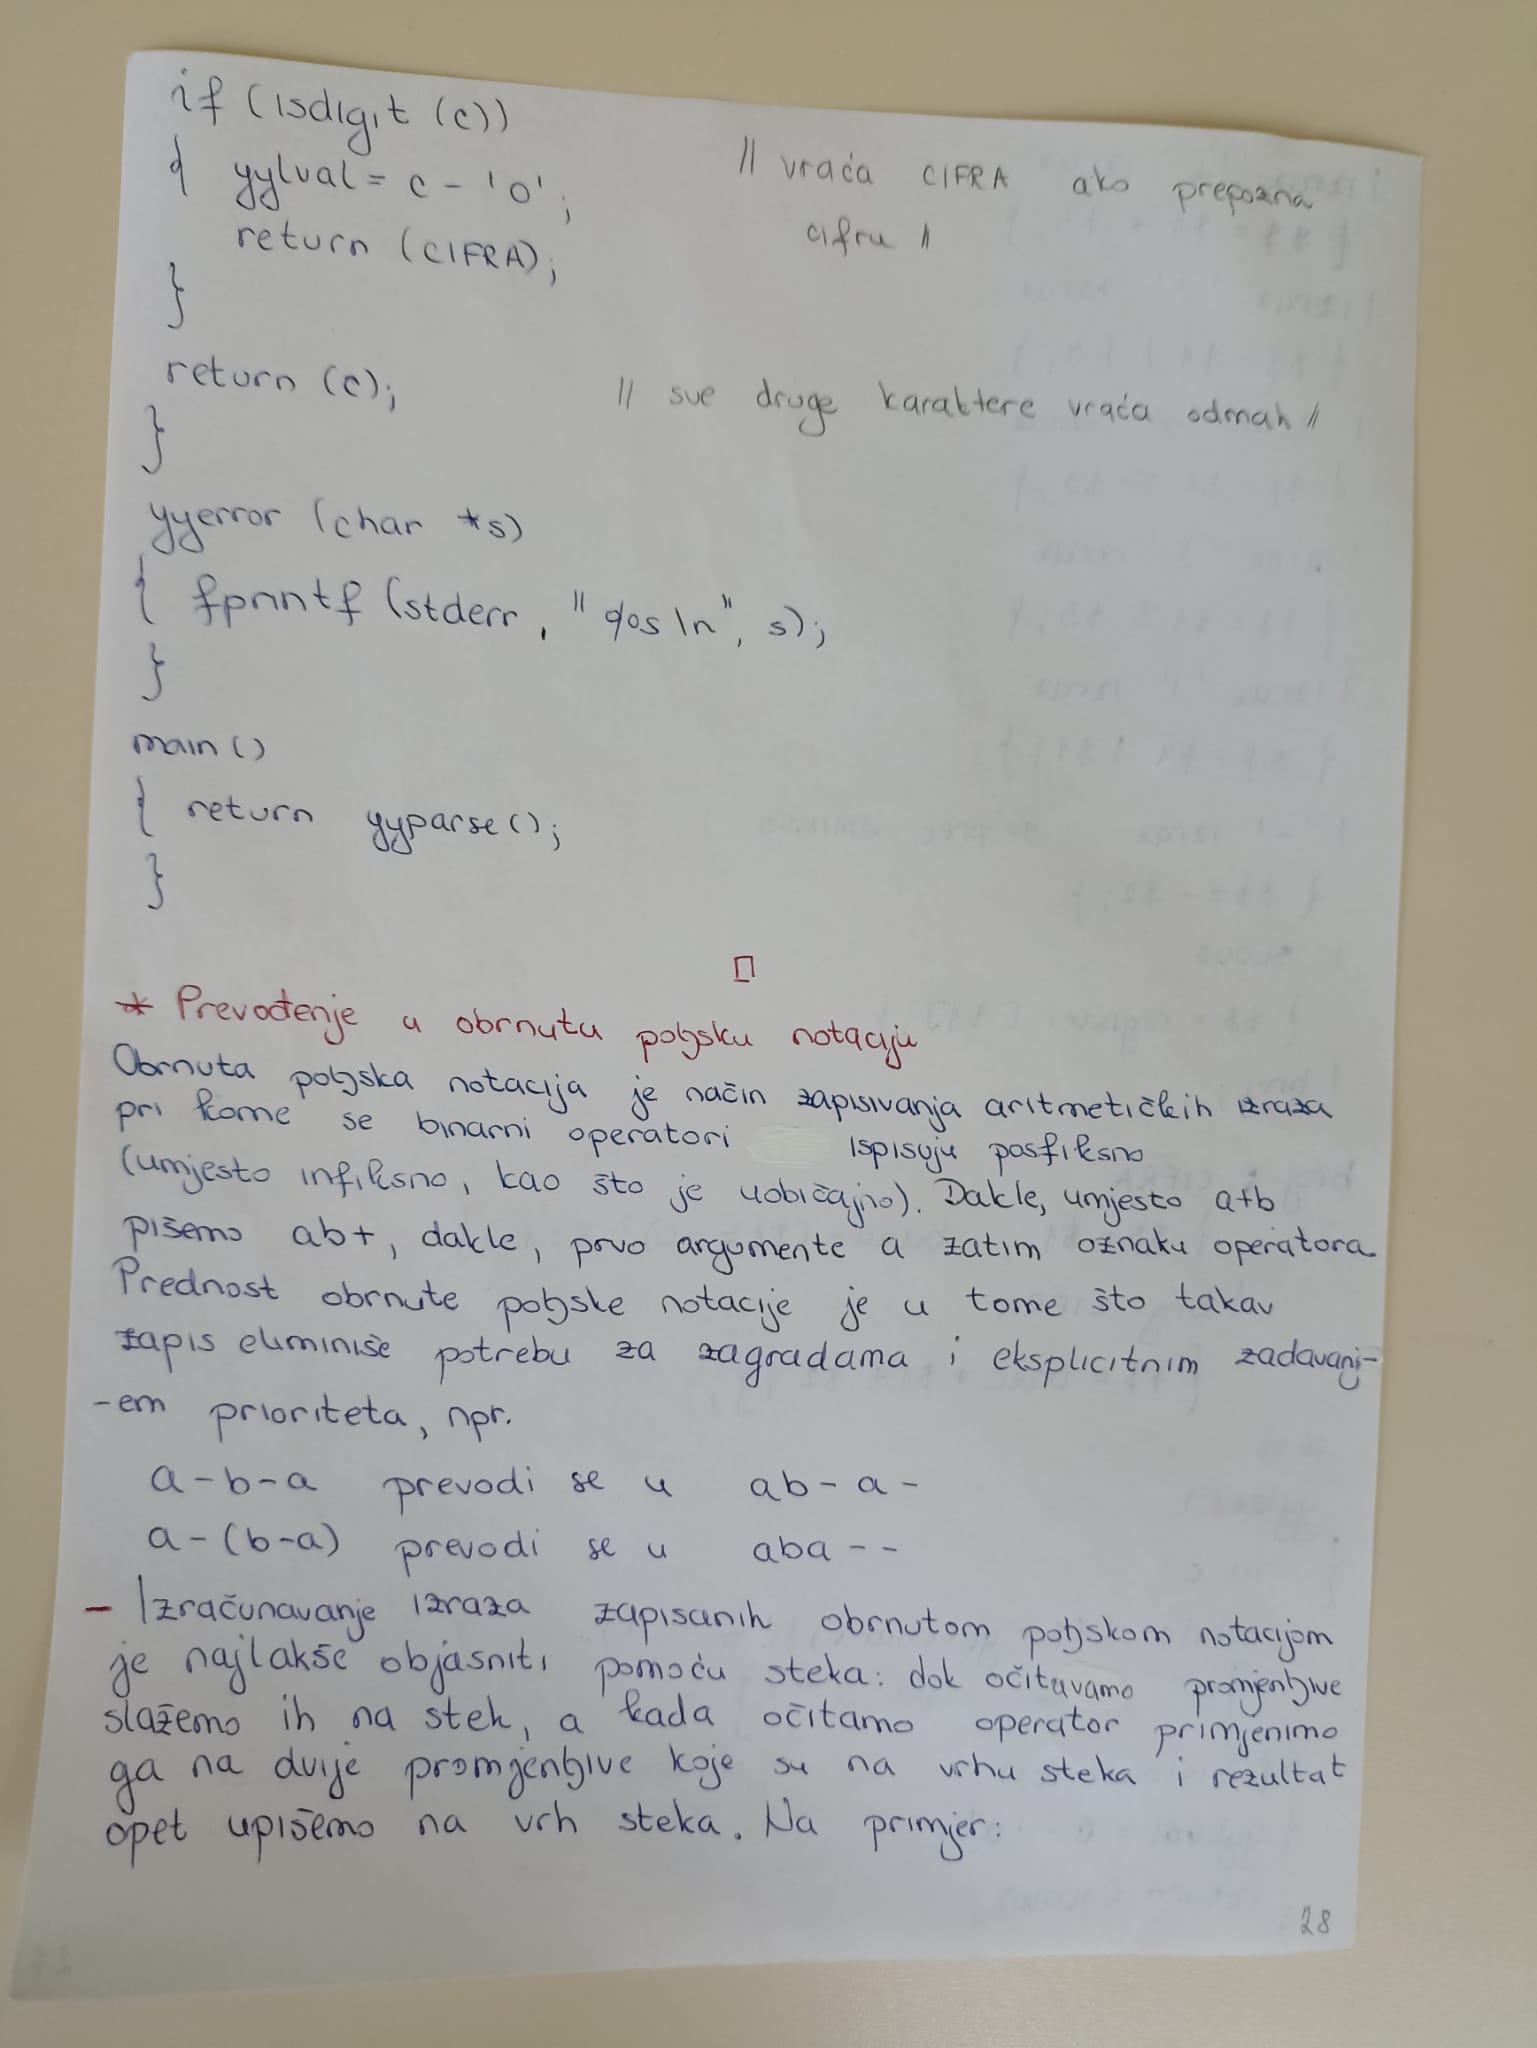 if (isdigit (c))
{ yylval = c - '0';
// vraća CIFRA ako prepozna
return (CIFRA);
cifru //
}
return (c);
// sve druge karaktere vraća odmah //
}
yyerror (char *s)
{ fprintf (stderr, "%s\n", s);
}
main ()
{ return yyparse();
}
* Prevođenje u obrnutu poljsku notaciju
Obrnuta poljska notacija je način zapisivanja aritmetičkih izraza
pri kome se binarni operatori ispisuju posfiksno
(umjesto infiksno, kao što je uobičajno). Dakle, umjesto a+b
pišemo ab+, dakle, prvo argumente a zatim oznaku operatora.
Prednost obrnute poljske notacije je u tome što takav
zapis eliminiše potrebu za zagradama i eksplicitnim zadavanj-
-em prioriteta, npr.
a-b-a prevodi se u ab-a-
a-(b-a) prevodi se u aba--
- Izračunavanje izraza zapisanih obrnutom poljskom notacijom
je najlakše objasniti pomoću steka: dok očitavamo promjenljive
slažemo ih na stek, a kada očitamo operator primjenimo
ga na dvije promjenljive koje su na vrhu steka i rezultat
opet upišemo na vrh steka. Na primjer:
28